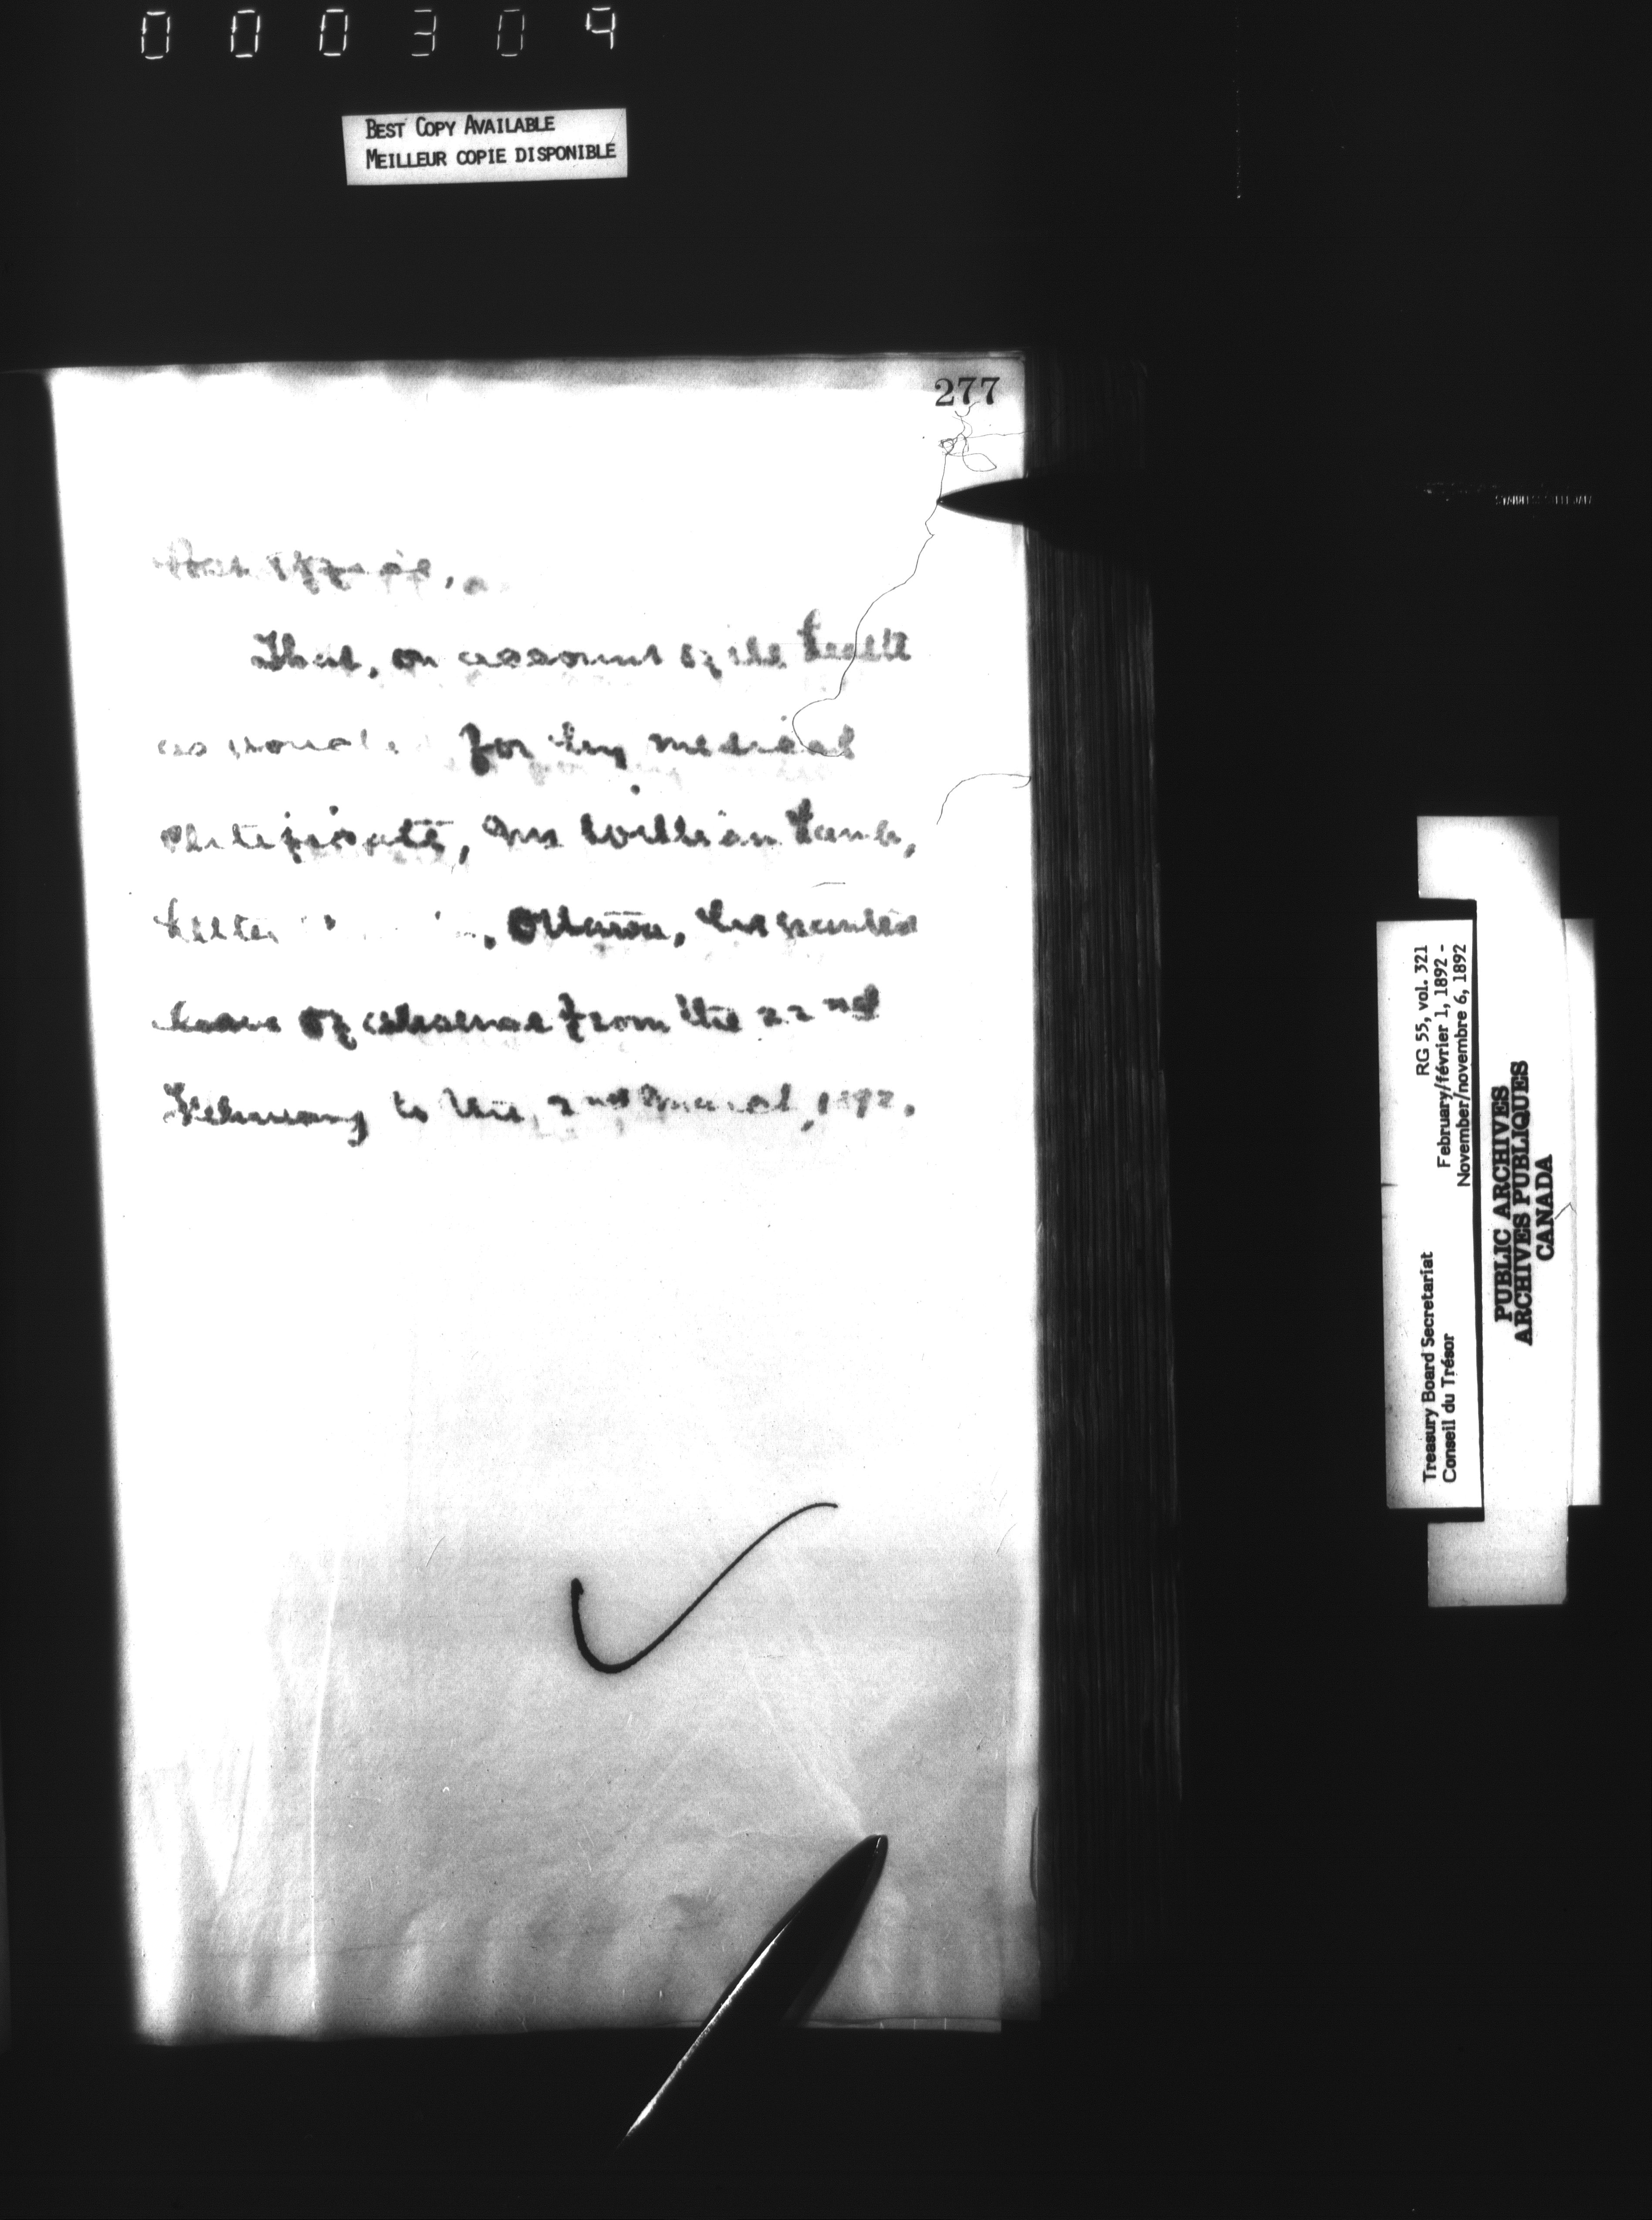 000304
BEST COPY AVAILABLE
MEILLEUR COPIE DISPONIBLE
277
Post Office,
That, on account of ill health
as for by medical
certificate, Mr William Lamb,
Letter Ottawa, be granted
leave of absence from the 22nd
February to the 2nd March, 1892.
Treasury Board Secretariat RG 55, vol. 321
Conseil du Trésor February/février 1, 1892 -
November/novembre 6, 1892
PUBLIC ARCHIVES
ARCHIVES PUBLIQUES
CANADA